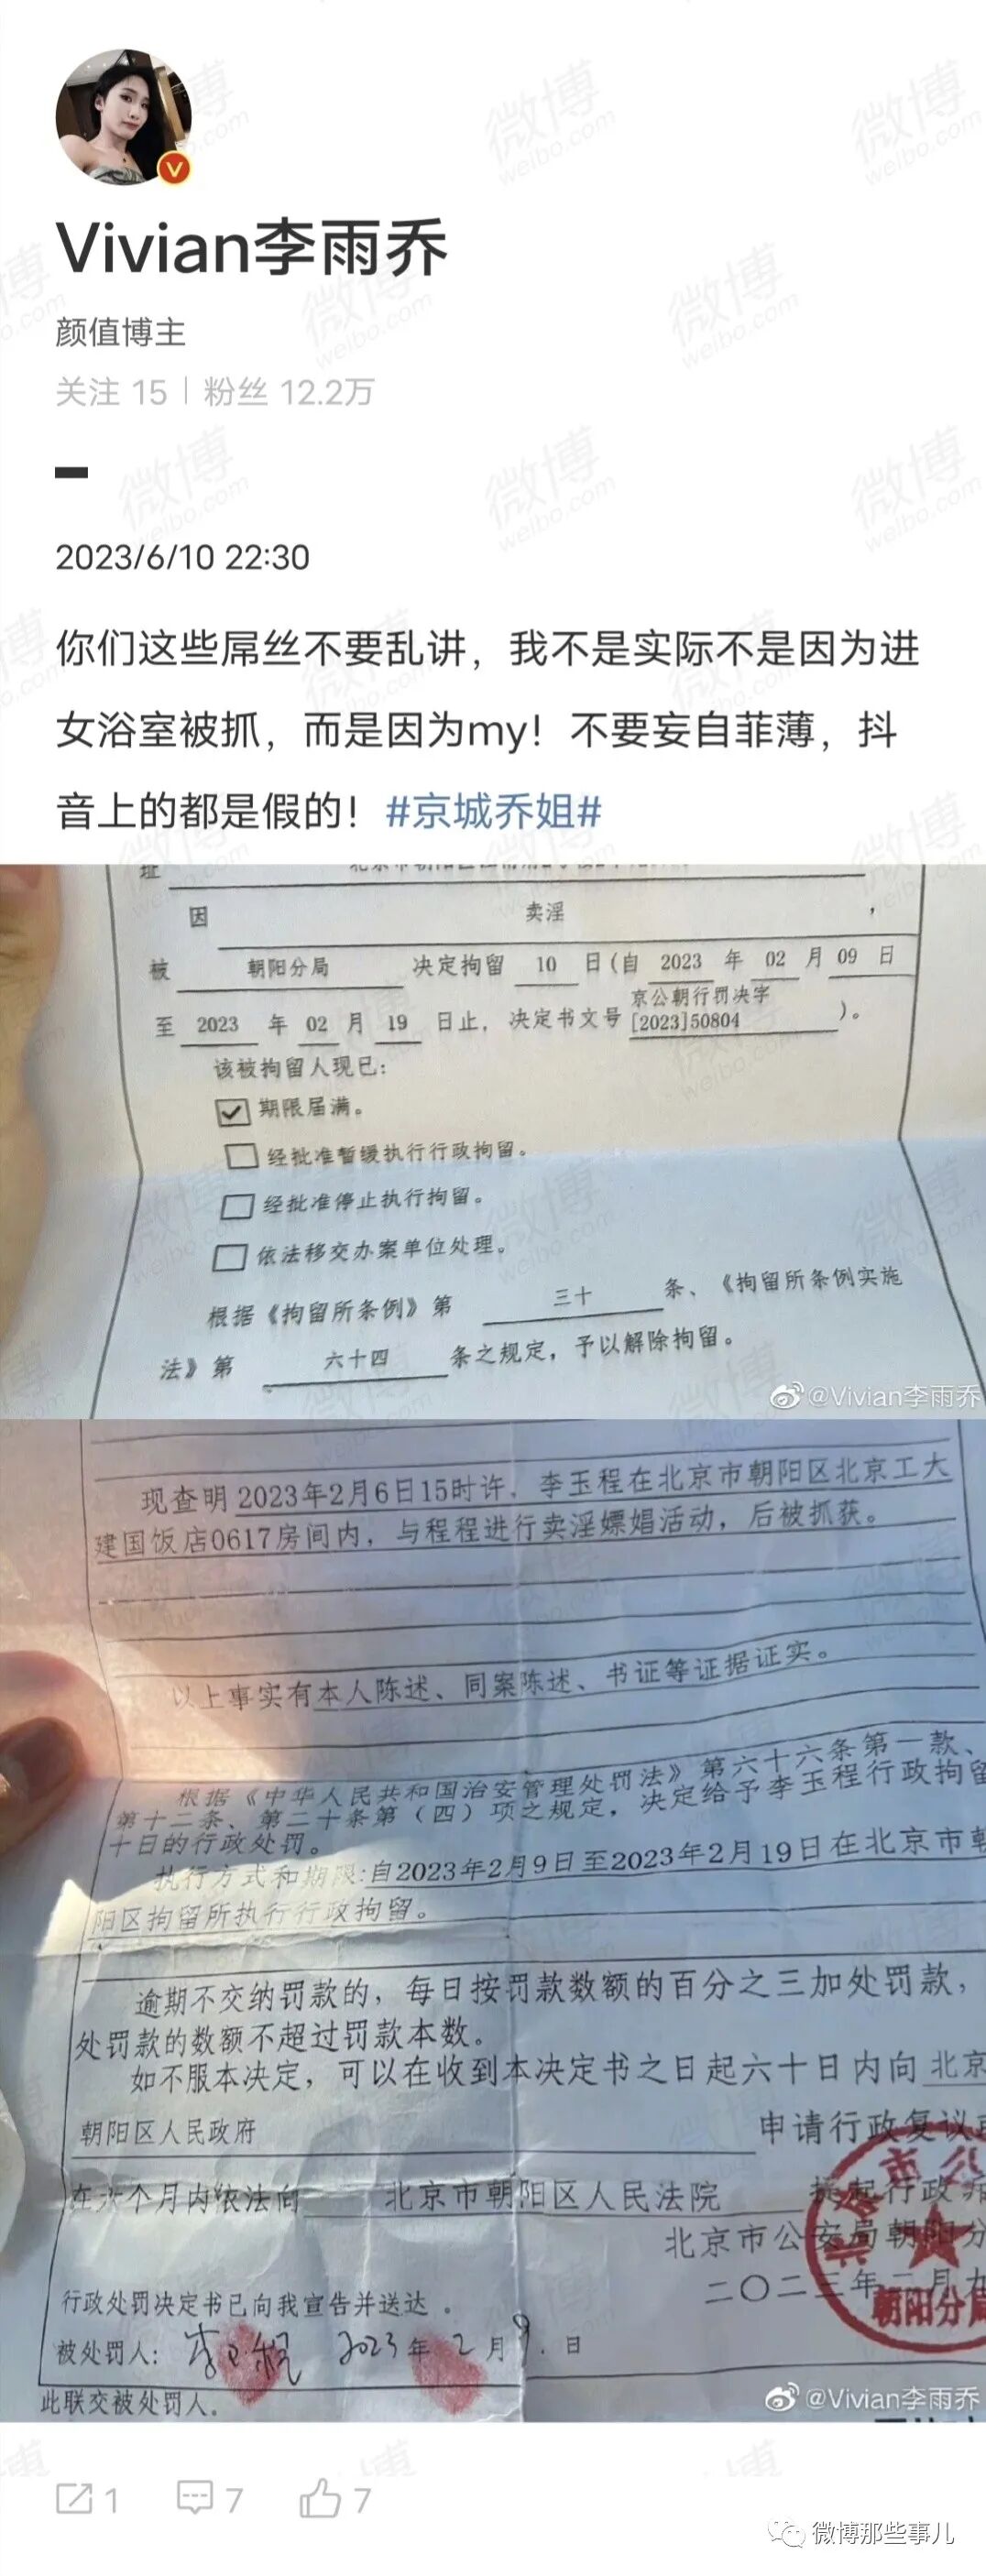 Vivian李雨乔
颜值博主
关注 15 | 粉丝 12.2万
2023/6/10 22:30
你们这些屌丝不要乱讲，我不是实际不是因为进
女浴室被抓，而是因为my！不要妄自菲薄，抖
音上的都是假的！#京城乔姐#
址
因 卖淫 ，
被 朝阳分局 决定拘留 10 日（自 2023 年 02 月 09 日
至 2023 年 02 月 19 日止，决定书文号 京公朝行罚决字
[2023]50804 ）。
该被拘留人现已：
期限届满。
经批准暂缓执行行政拘留。
经批准停止执行拘留。
依法移交办案单位处理。
根据《拘留所条例》第 三十 条、《拘留所条例实施
法》第 六十四 条之规定，予以解除拘留。
@Vivian李雨乔
现查明2023年2月6日15时许，李玉程在北京市朝阳区北京工大
建国饭店0617房间内，与程程进行卖淫嫖娼活动，后被抓获。
以上事实有本人陈述、同案陈述、书证等证据证实。
根据《中华人民共和国治安管理处罚法》第六十六条第一款、
第十二条、第二十条第（四）项之规定，决定给予李玉程行政拘留
十日的行政处罚。
执行方式和期限:自2023年2月9日至2023年2月19日在北京市朝
阳区拘留所执行行政拘留。
逾期不交纳罚款的，每日按罚款数额的百分之三加处罚款，
处罚款的数额不超过罚款本数。
如不服本决定，可以在收到本决定书之日起六十日内向 北京
朝阳区人民政府 申请行政复议
在六个月内依法向 北京市朝阳区人民法院 提起行政
北京市公安局朝阳分
二〇二三年二月九
朝阳分局
行政处罚决定书已向我宣告并送达。
被处罚人：李玉程 2023年2月9日
此联交被处罚人。
@Vivian李雨乔
1 7 7
微博那些事儿